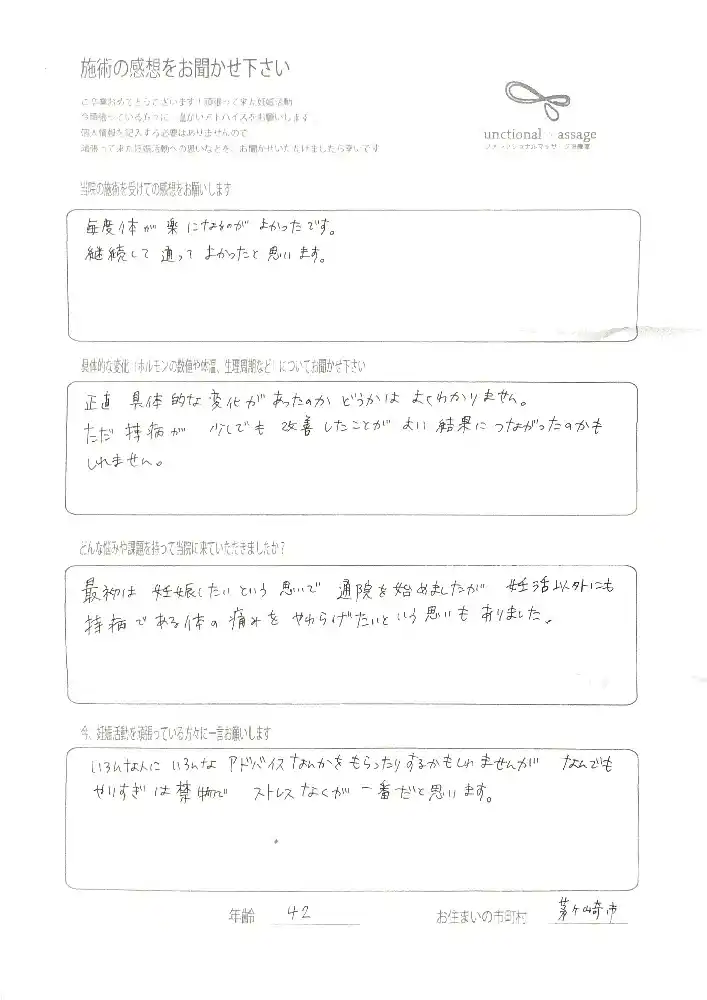 施術の感想をお聞かせ下さい
ご卒業おめでとうございます！頑張って来た妊娠活動
今頑張っている方々に、温かいアドバイスをお願いします
個人情報を記入する必要はありませんので
頑張って来た妊娠活動への思いなどを、お聞かせいただけましたら幸いです
unctional assage
ファンクショナルマッサージ治療室
当院の施術を受けての感想をお願いします
毎度体が楽になるのがよかったです。
継続して通ってよかったと思います。
具体的な変化（ホルモンの数値や体温、生理周期など）についてお聞かせ下さい
正直 具体的な変化があったのかどうかはよくわかりません。
ただ持病が 少しでも改善したことがよい結果につながったのかも
しれません。
どんな悩みや課題を持って当院に来ていただきましたか？
最初は 妊娠したいという思いで 通院を始めましたが 妊活以外にも
持病である体の痛みをやわらげたいという思いもありました。
今、妊娠活動を頑張っている方々に一言お願いします
いろんな人にいろんなアドバイスなんかをもらったりするかもしれませんが なんでも
やりすぎは禁物で ストレスなくが一番だと思います。
年齢 42
お住まいの市町村 茅ケ崎市